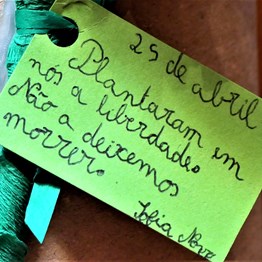 25 de abril
Plantaram em
nós a liberdade.
Não a deixemos
morrer.